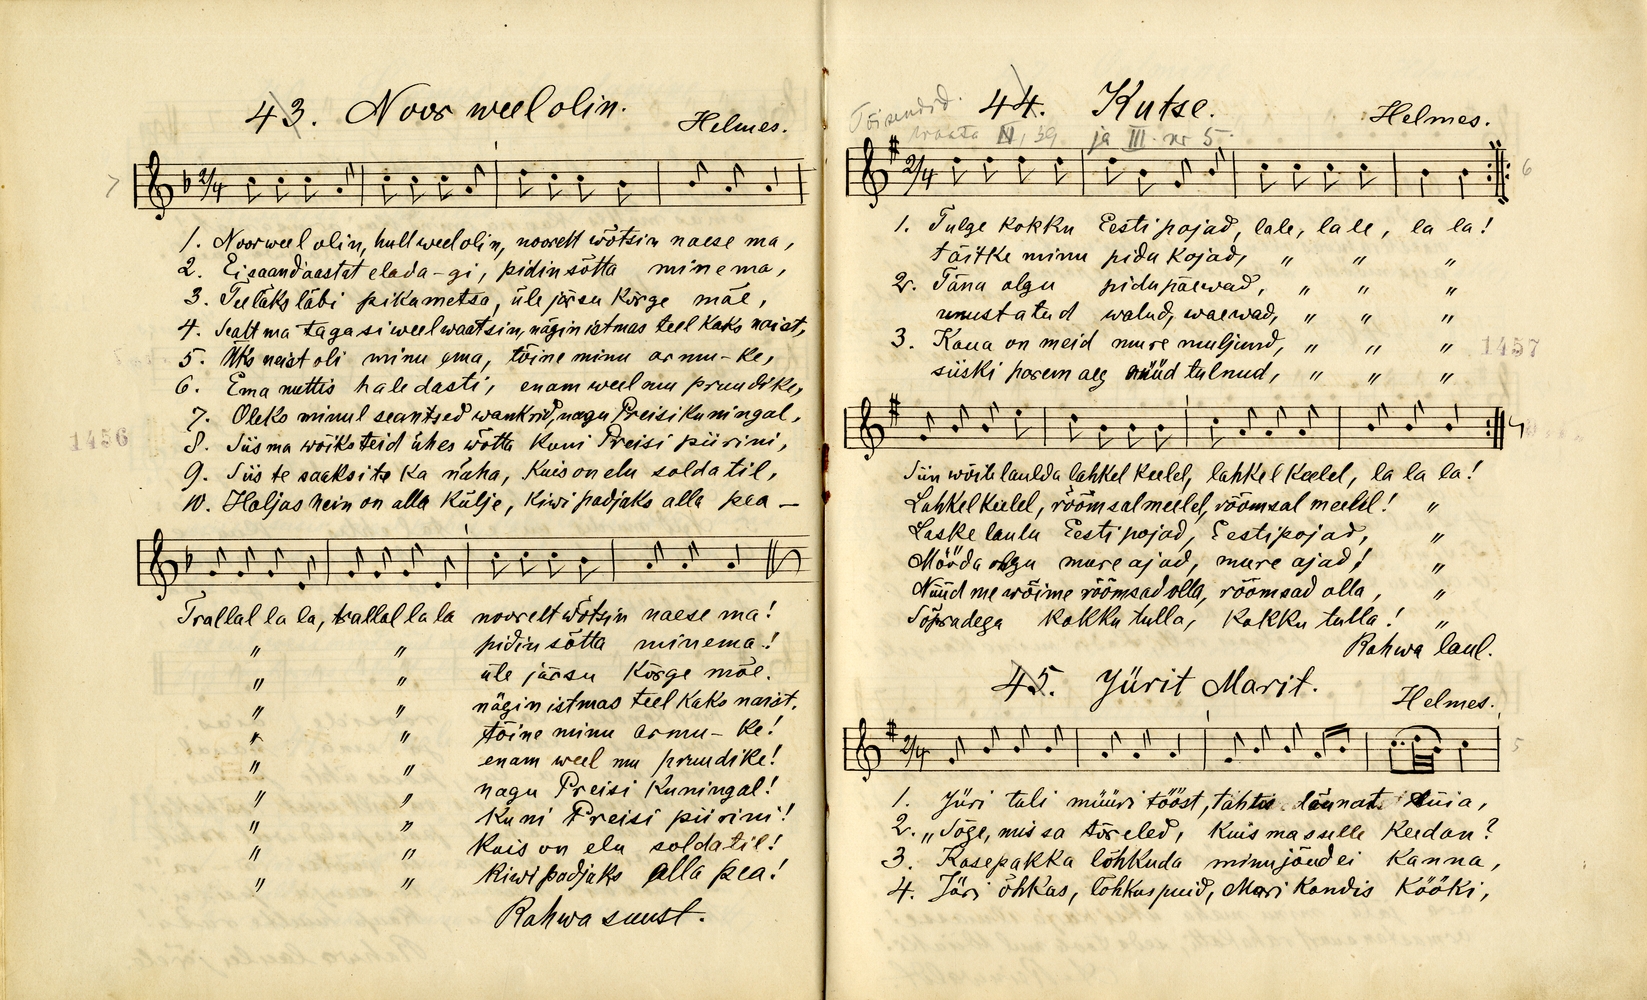 43. Noor weel olin.
Helmes.
7
2/4
1. Noor weel olin, hull weel olin, noorelt wõtsin naese ma,
2. Ei saand aastat elada-gi, pidin sõtta minema,
3. Tee läks läbi pika metsa, üle järsu kõrge mäe,
4. Sealt ma tagasi weel waatsin, nägin istmas teel kaks naist,
5. Üks neist oli minu ema, tõine minu armu-ke,
6. Ema nuttis haledasti, enam weel mu pruudike,
7. Oleks minul seantsed wankrid, nagu Preisi kuningal,
8. Siis ma wõiks teid ühes wõtta kuni Preisi piirini,
9. Siis te saaksite ka näha, kuis on elu soldatil,
10. Haljas hein on alla külje, kiwi padjaks alla pea –
1456
Trallal la la, trallal la la noorelt wõtsin naese ma!
" " pidin sõtta minema!
" " üle järsu kõrge mäe.
" " nägin istmas teel kaks naist.
" " tõine minu armu- ke!
" " enam weel mu pruudike!
" " nagu Preisi kuningal!
" " kuni Preisi piirini!
" " kuis on elu soldatil!
" " kiwi padjaks alla pea!
Rahwa suust.
44. Kutse.
Helmes.
Tõisendid.
waata II, 39 ja III. nr 5.
2/4
6
1. Tulge kokku Eesti pojad, lale, lale, la la!
täitke minu pidu kojad, " " "
2. Täna olgu pidupäewad, " " "
unustatud walud, waewad, " " "
3. Kaua on meid mure muljunud, " " "
siiski parem aeg nüüd tulnud, " " "
1457
Siin wõite laulda lahkel keelel, lahkel keelel, la la la!
Lahkel keelel, rõõmsal meelel, rõõmsal meelel! "
Laske laulu Eesti pojad, Eesti pojad, "
Mööda olgu mure ajad, mure ajad! "
Nüüd me wõime rõõmsad olla, rõõmsad olla, "
Sõpradega kokku tulla, kokku tulla! "
Rahwa laul.
45. Jürit Marit.
Helmes.
2/4
5
1. Jüri tuli müüri tööst, tahtis lõunat süia,
2. „Sõge, mis sa tõreled, kuis ma sulle keedan?
3. Kasepakka lõhkuda minu jõud ei kanna,
4. Jüri õhkas, lõhkus puid, Mari kandis kööki,